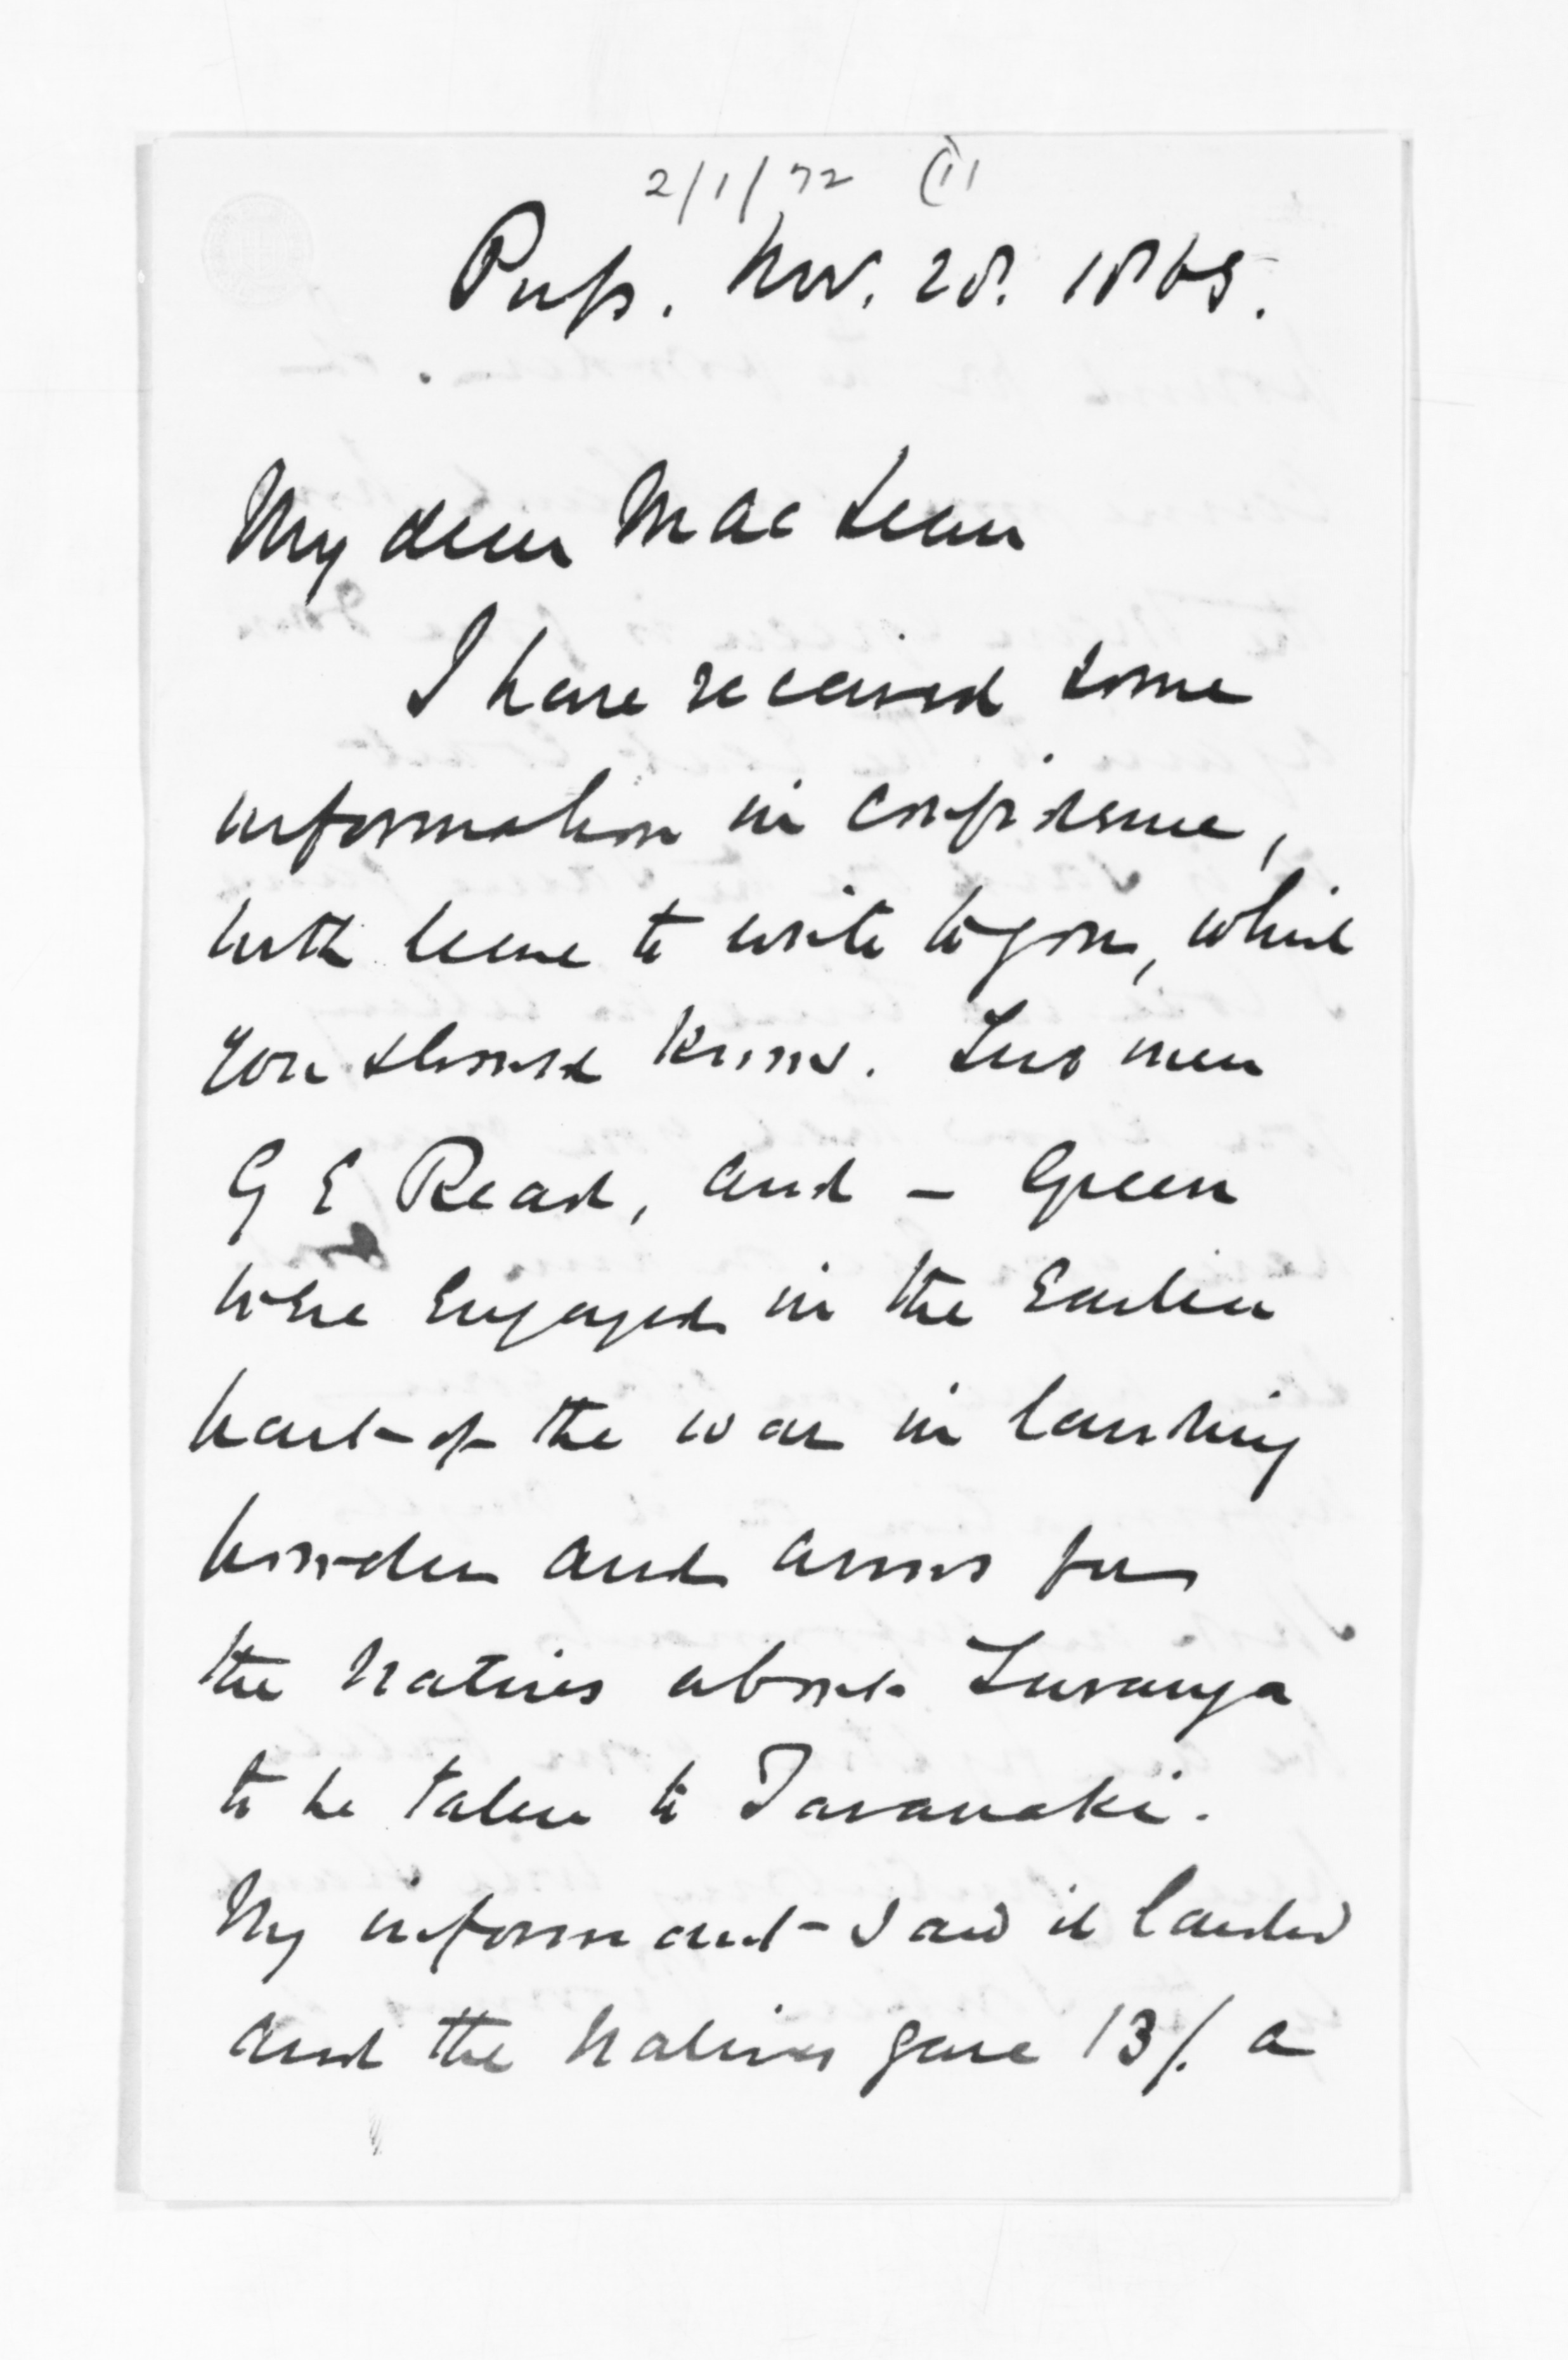 2/1/72 (1)
Nov. 28. 1865.
My dear Mac Lean
I have received some
information in confidence,
with leave to write to you, which
you should know. Two men
G E Read, and – Green
were engaged in the Earlier
part of the war in landing
powder and arms for
the Natives about Turanga
to be taken to Taranaki.
My informant saw it landed
and the Natives gave 13/. a